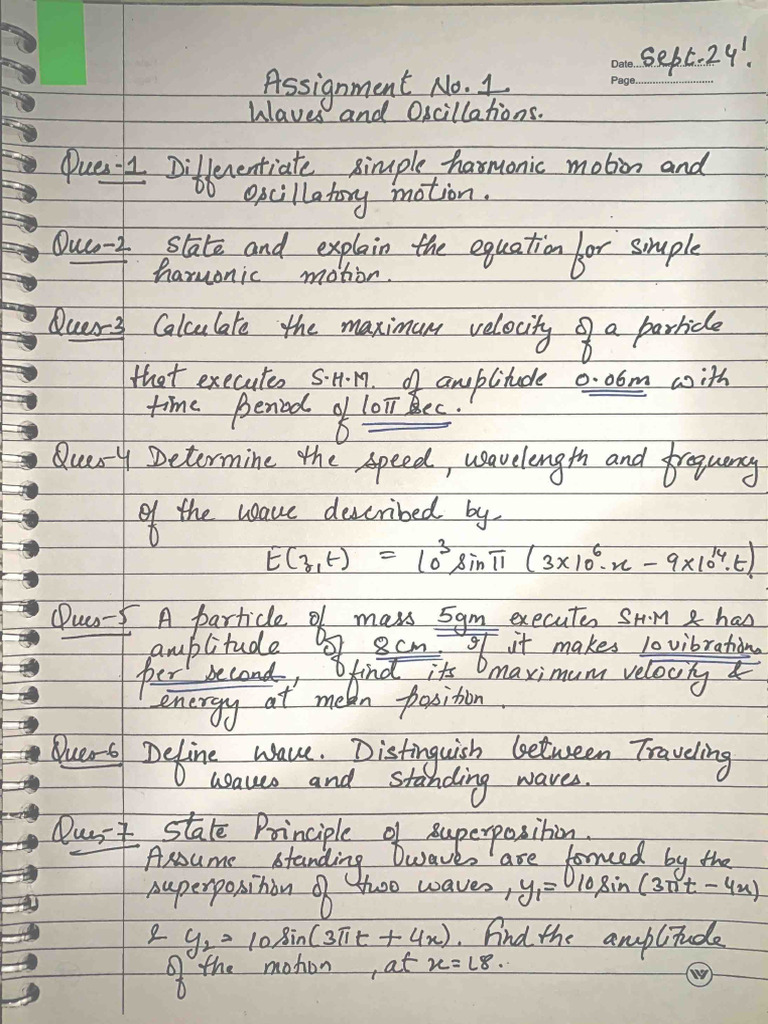 Date....Sept.24'.
Page..........................
Assignment No. 1.
Waves and Oscillations.
Ques-1 Differentiate simple harmonic motion and
oscillatory motion.
Ques-2 State and explain the equation for simple
harmonic motion.
Ques-3 Calculate the maximum velocity of a particle
that executes S.H.M. of amplitude 0.06m with
time period of 10π sec.
Ques-4 Determine the speed, wavelength and frequency
of the wave described by
E(z,t) = 10³ sin π (3x10⁶.x - 9x10¹⁴.t)
Ques-5 A particle of mass 5gm executes S.H.M & has
amplitude of 8cm. If it makes 10 vibrations
per second, find its maximum velocity &
energy at mean position.
Ques-6 Define wave. Distinguish between Traveling
waves and standing waves.
Ques-7 State Principle of superposition.
Assume standing waves are formed by the
superposition of two waves, y₁= 10 sin (3πt - 4x)
& y₂= 10 sin(3πt + 4x). Find the amplitude
of the motion, at x=18.
W